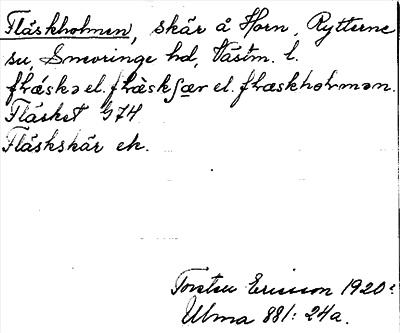 Fläskholmen, skär å Horn, Rytterne
sn, Snevringe hd, Västm. l.
flǽskə el. flæ̀skʃær el. flæskholmən.
Fläsket G 74
Fläskskär ek.
Torsten Ericsson 1920:
Ulma 881: 24a.